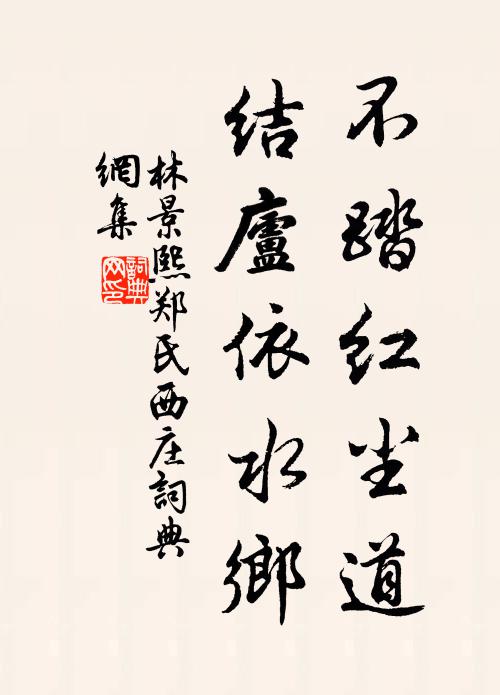 不踏红尘道
结廬依水鄉
林景熙郑氏西庄詞典
網集
詞典
网印